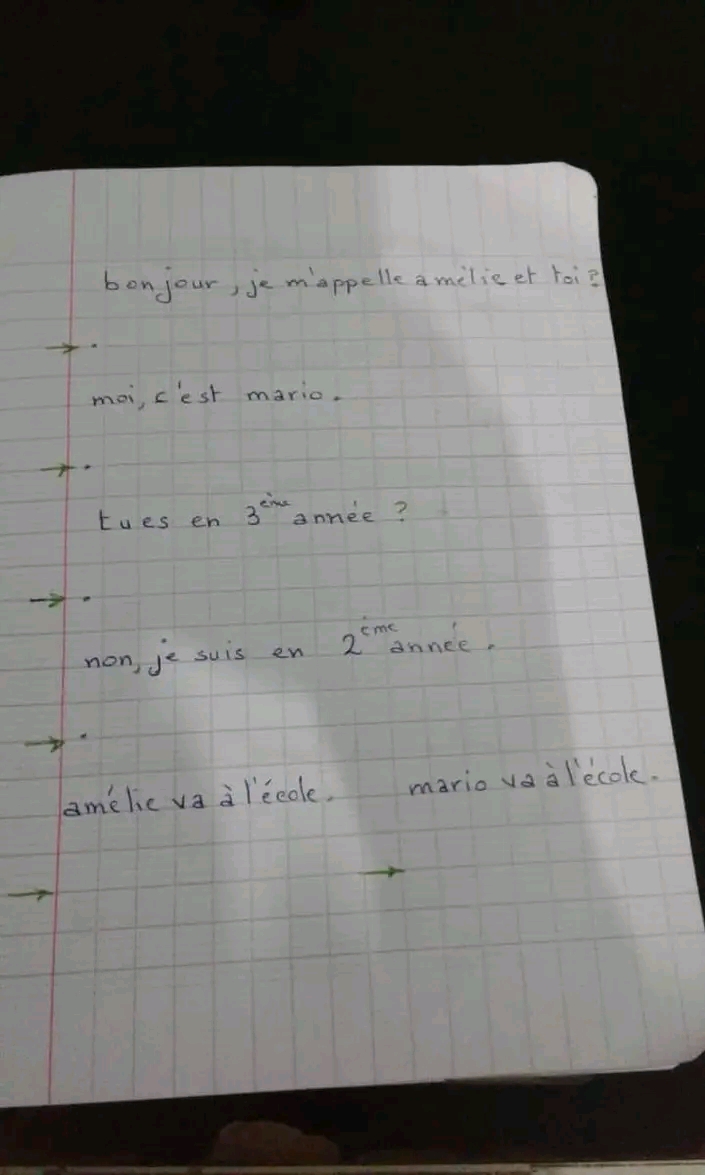 bonjour, je m'appelle amélie et toi ?
moi, c'est mario.
tu es en 3ème année ?
non, je suis en 2ème année.
amélie va à l'école. mario va à l'école.